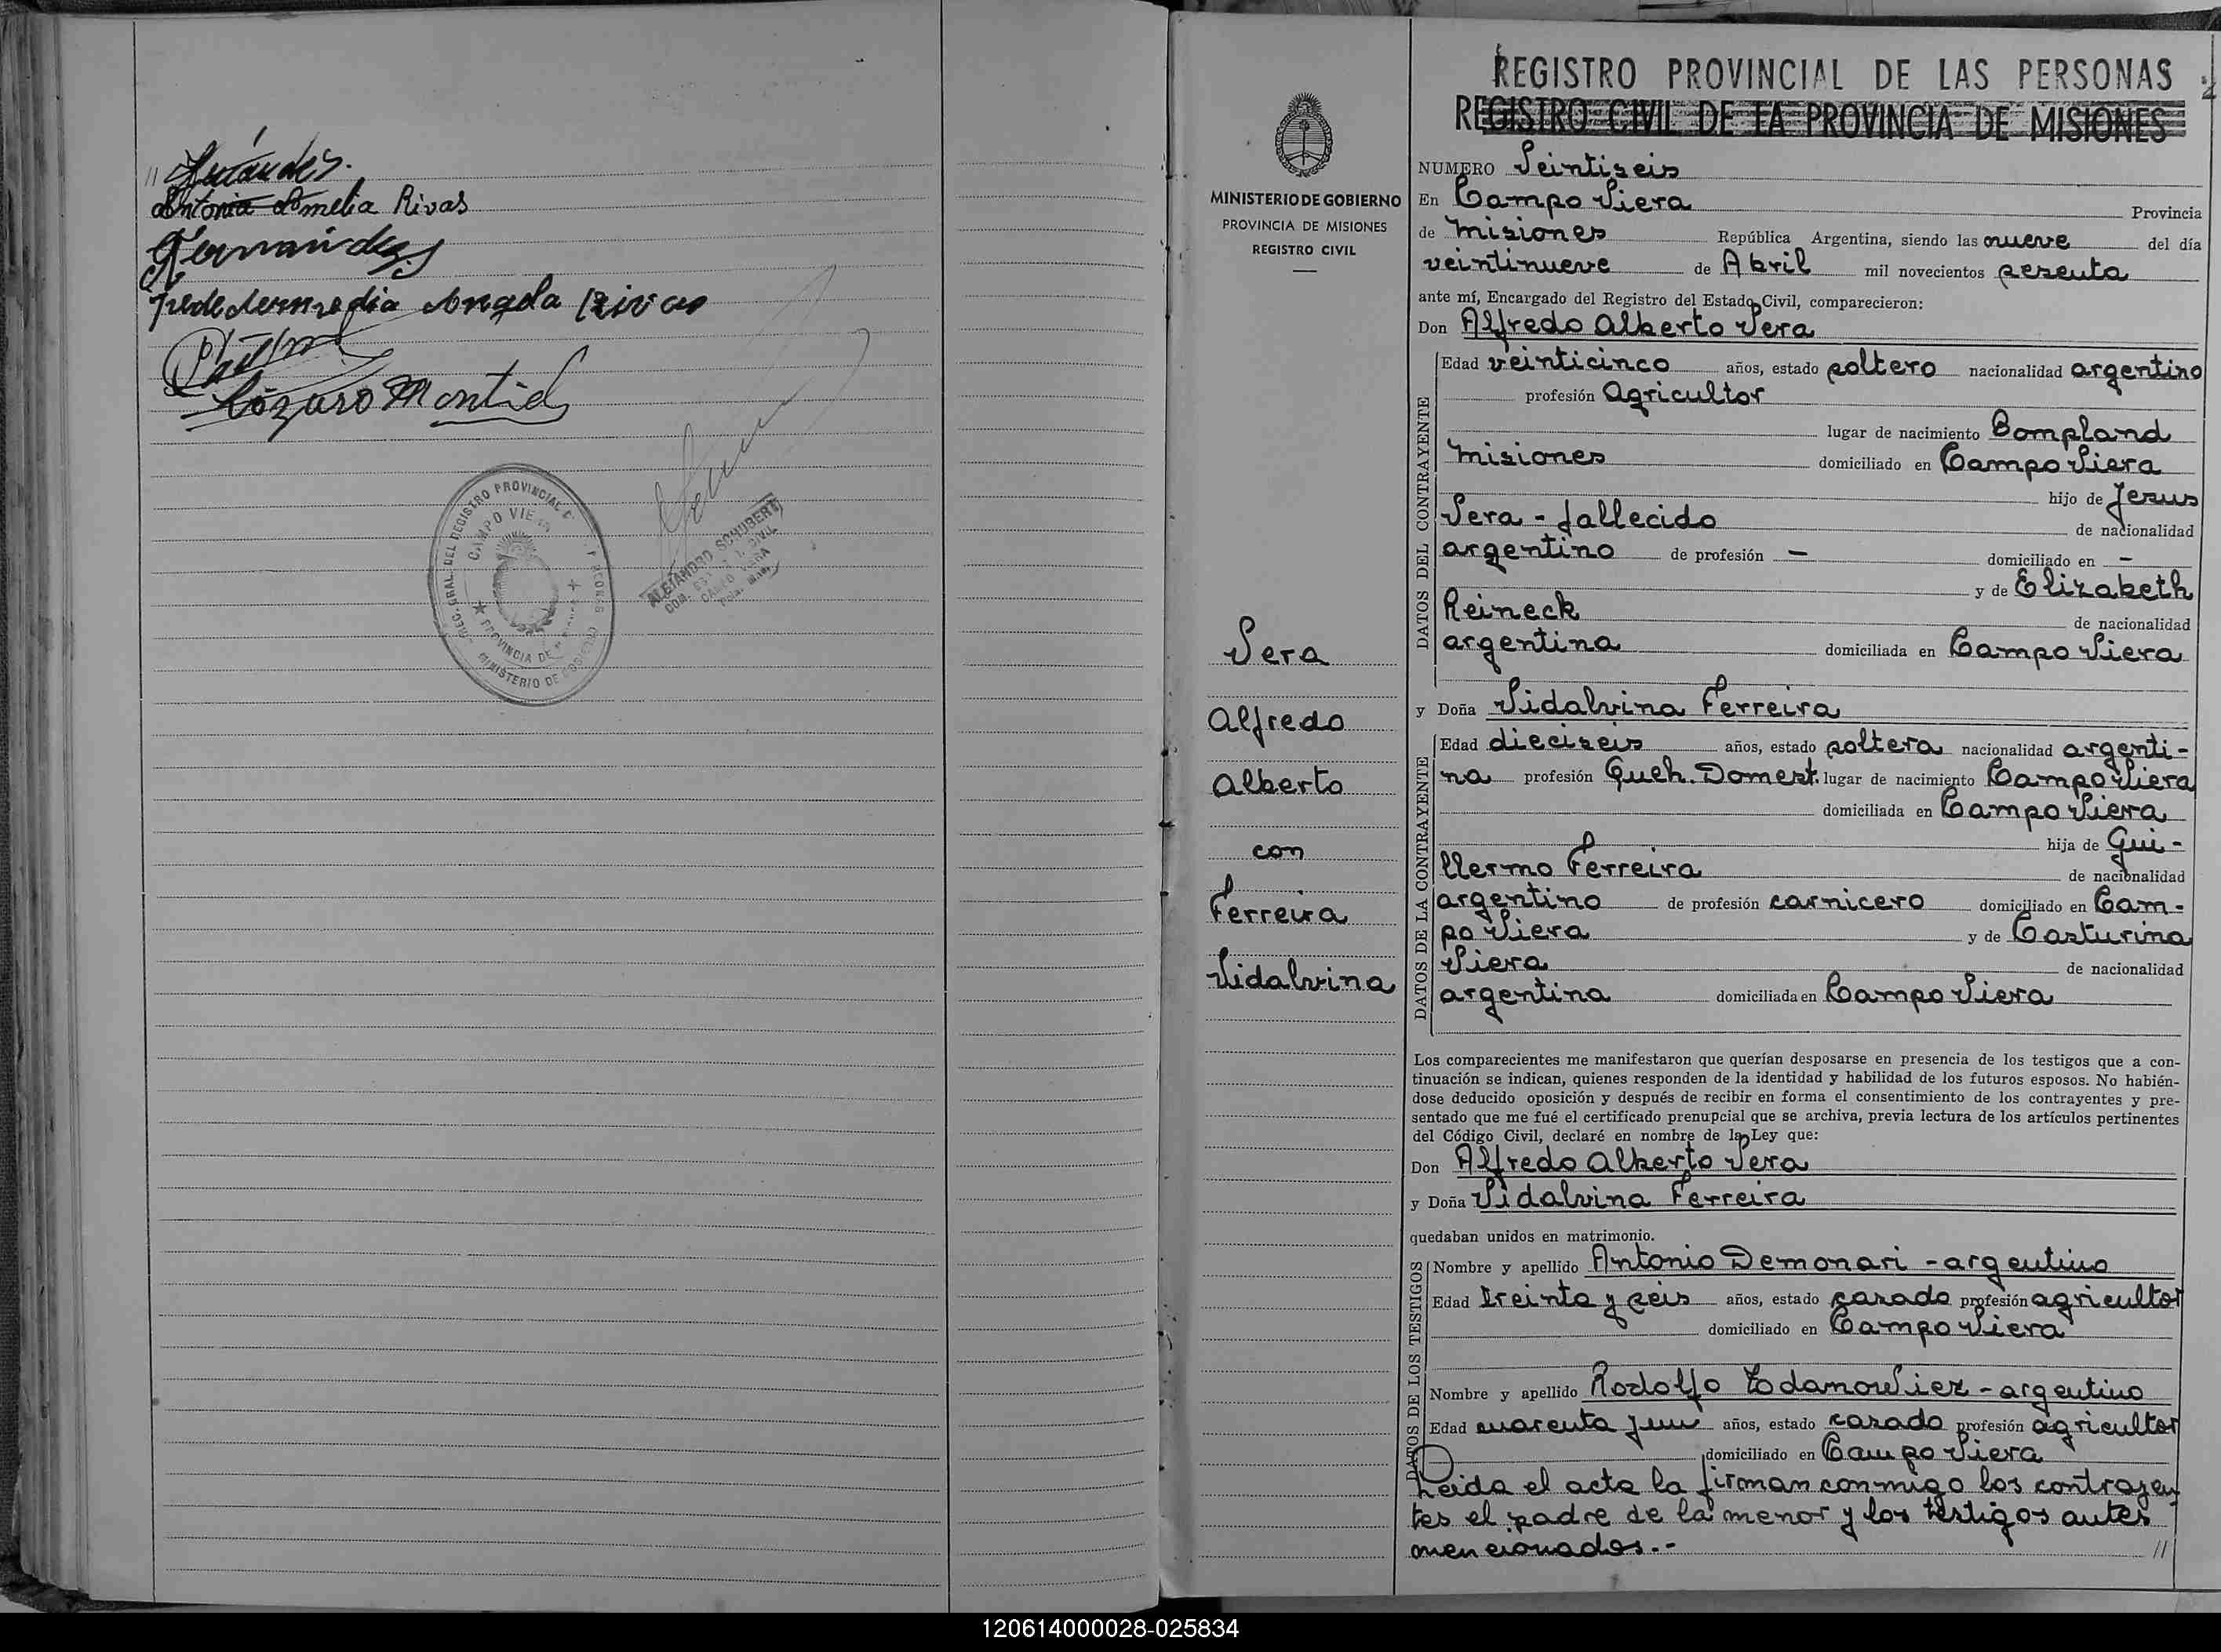 Antonia Amelia Rivas
Fernandez
Angela Rivas
Lázaro Montiel
REGISTRO PROVINCIAL
CAMPO VIERA
PROVINCIA DE
MINISTERIO DE
ALEJANDRO SCHUBERT
MINISTERIO DE GOBIERNO
PROVINCIA DE MISIONES
REGISTRO CIVIL
Vera
Alfredo
Alberto
con
Ferreira
Vidalvina
REGISTRO PROVINCIAL DE LAS PERSONAS
REGISTRO CIVIL DE LA PROVINCIA DE MISIONES
NUMERO Veintiseis
En Campo Viera Provincia
de Misiones República Argentina, siendo las nueve del día
veintinueve de Abril mil novecientos sesenta
ante mí, Encargado del Registro del Estado Civil, comparecieron:
Don Alfredo Alberto Vera
DATOS DEL CONTRAYENTE
Edad veinticinco años, estado soltero nacionalidad argentino
profesión Agricultor
lugar de nacimiento Bompland
Misiones domiciliado en Campo Viera
hijo de Jesus
Vera - fallecido de nacionalidad
argentino de profesión — domiciliado en —
y de Elizabeth
Reineck de nacionalidad
argentina domiciliada en Campo Viera
y Doña Vidalvina Ferreira
DATOS DE LA CONTRAYENTE
Edad dieciseis años, estado soltera nacionalidad argenti-
na profesión Queh. Domest. lugar de nacimiento Campo Viera
domiciliada en Campo Viera
hija de Gui-
llermo Ferreira de nacionalidad
argentino de profesión carnicero domiciliado en Cam-
po Viera y de Casturina
Viera de nacionalidad
argentina domiciliada en Campo Viera
Los comparecientes me manifestaron que querían desposarse en presencia de los testigos que a con-
tinuación se indican, quienes responden de la identidad y habilidad de los futuros esposos. No habién-
dose deducido oposición y después de recibir en forma el consentimiento de los contrayentes y pre-
sentado que me fué el certificado prenupcial que se archiva, previa lectura de los artículos pertinentes
del Código Civil, declaré en nombre de la Ley que:
Don Alfredo Alberto Vera
y Doña Vidalvina Ferreira
quedaban unidos en matrimonio.
DATOS DE LOS TESTIGOS
Nombre y apellido Antonio Demonari - argentino
Edad treinta y seis años, estado casado profesión agricultor
domiciliado en Campo Viera
Nombre y apellido Rodolfo - argentino
Edad cuarenta y un años, estado casado profesión agricultor
domiciliado en Campo Viera
Leida el acta la firman conmigo los contrayen
tes el padre de la menor y los testigos antes
mencionados.- //
120614000028-025834